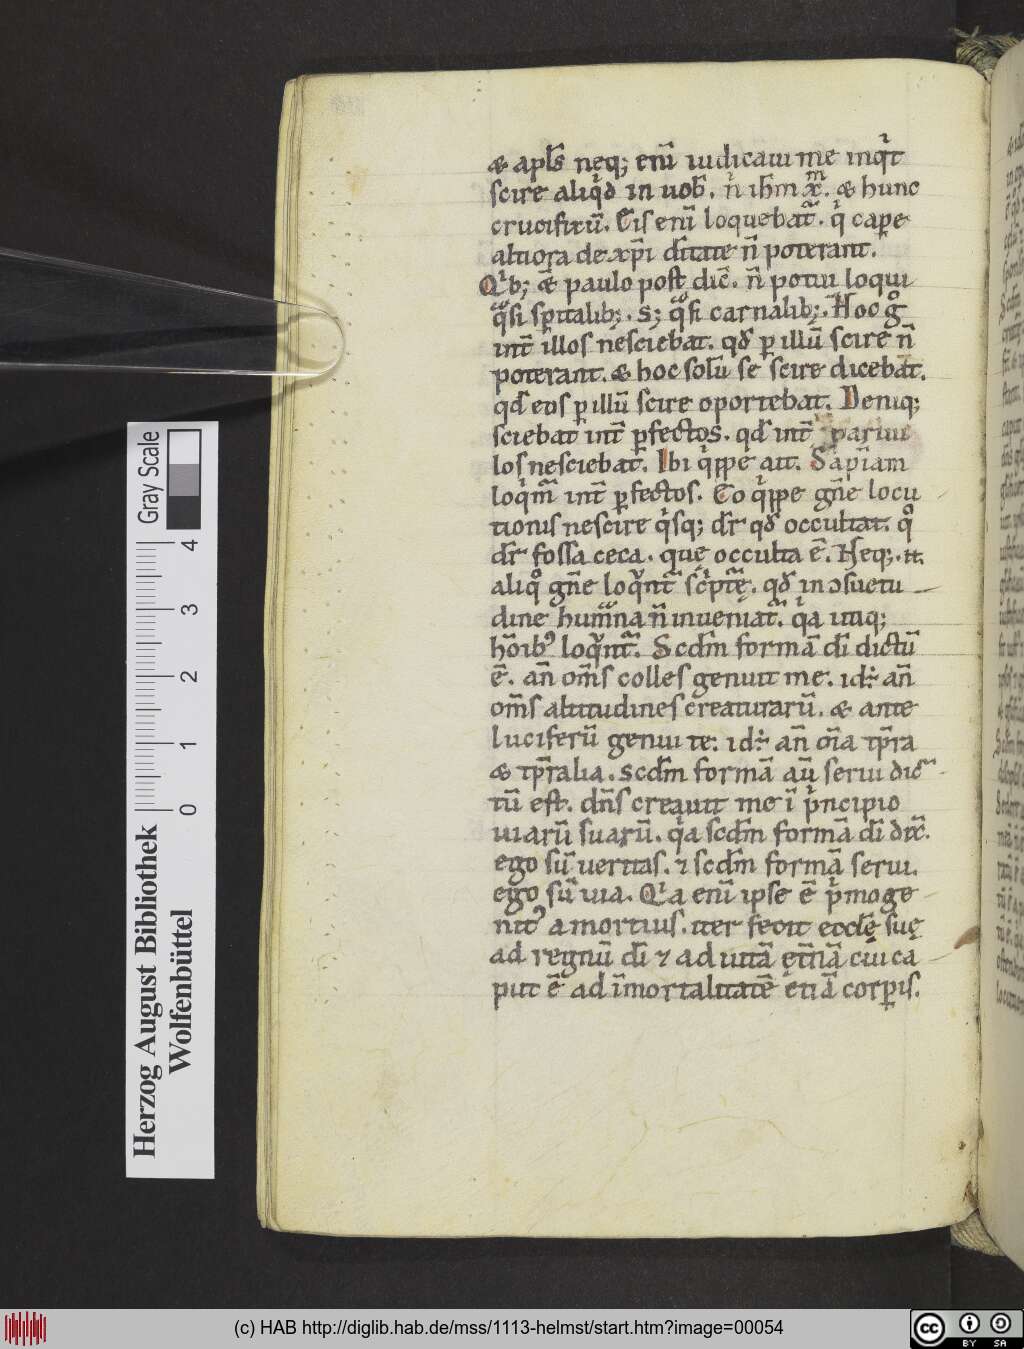 & apl̄s neq; enī iudicaui me inqͥt
scire aliqͥd in uob̄. n̄ ih̄m xp̄m. & hunc
crucifixū. Eis enī loquebat̄. qͥ cap̲e
altiora de xp̄i dītate n̄ poterant.
Qͥb; & paulo post dic̄. n̄ potui loqui
qͣsi sp̲italib;. s; qͣsi carnalib;. Hoc gͦ
int̄ illos nesciebat. qd̄ p̲ illū scire n̄
poterant. & hoc solū se scire dicebat.
qd̄ eos p̲ illū scire oportebat. Deniq;
sciebat int̄ p̲fectos. qd̄ int̄ paruu
los nesciebat. Ibi qͥppe ait. Sapīam
loqͥm̄ int̄ p̲fectos. Eo qͥppe gn̄e locu
tionis nescire qͥsq; dr̄ qd̄ occultat. qͦ
dr̄ fossa ceca. quę occulta ē. Neq;. n̄.
aliqͦ gn̄e loqͣnt̄ scͥptę. qd̄ in ɔsuetu
dine humͣna n̄ inueniat̄. qͥa utiq;
hōibꝰ loqͣnt̄. Scdm̄ formā dī dictū
ē. an̄ om̄s colles genuit me. id÷ an̄
om̄s altitudines creaturarū. & ante
luciferū genui te. id÷ an̄ oīa tp̄ra
& tp̄ralia. scdm̄ formā aū serui dic
tū est. dn̄s creauit me ī pͥncipio
uiarū suarū. qͥa scdm̄ formā dī dix̄.
ego sū ueritas. ⁊ scdm̄ formā serui.
ego sū uia. Qͥa enī ipse ē pͥmoge
nitꝰ a mortuis. iter fecit eccl̄ę suę
ad regnū dī ⁊ ad uitā ęt̄nā cui ca
put ē ad īmortalitatē etiā corp̲is.
Gray Scale
0 1 2 3 4
Herzog August Bibliothek
Wolfenbüttel
(c) HAB http://diglib.hab.de/mss/1113-helmst/start.htm?image=00054
cc BY SA